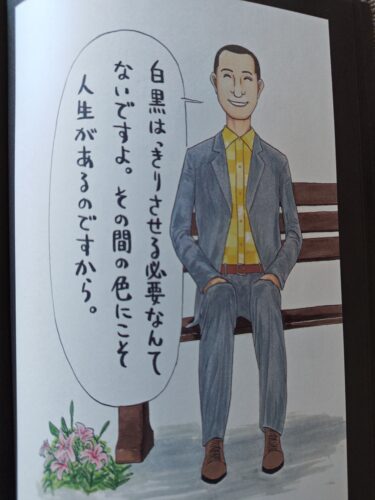 白黒はっきりさせる必要なんて
ないですよ。その間の色にこそ
人生があるのですから。